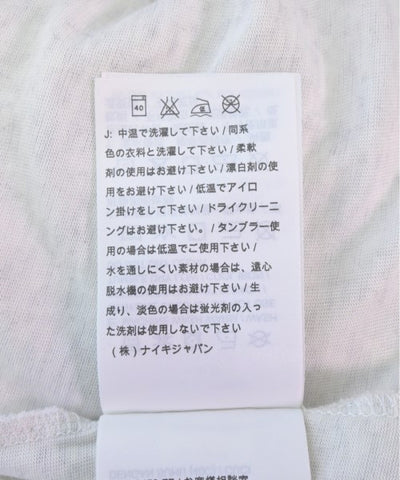 40
J: 中温で洗濯して下さい / 同系
色の衣料と洗濯して下さい / 柔軟
剤の使用はお避け下さい / 漂白剤の使
用をお避け下さい / 低温でアイロ
ン掛けをして下さい / ドライクリーニ
ングはお避け下さい。 / タンブラー使
用の場合は低温でご使用下さい /
水を通しにくい素材の場合は、遠心
脱水機の使用はお避け下さい / 生
成り、淡色の場合は蛍光剤の入っ
た洗剤は使用しないで下さい
(株) ナイキジャパン